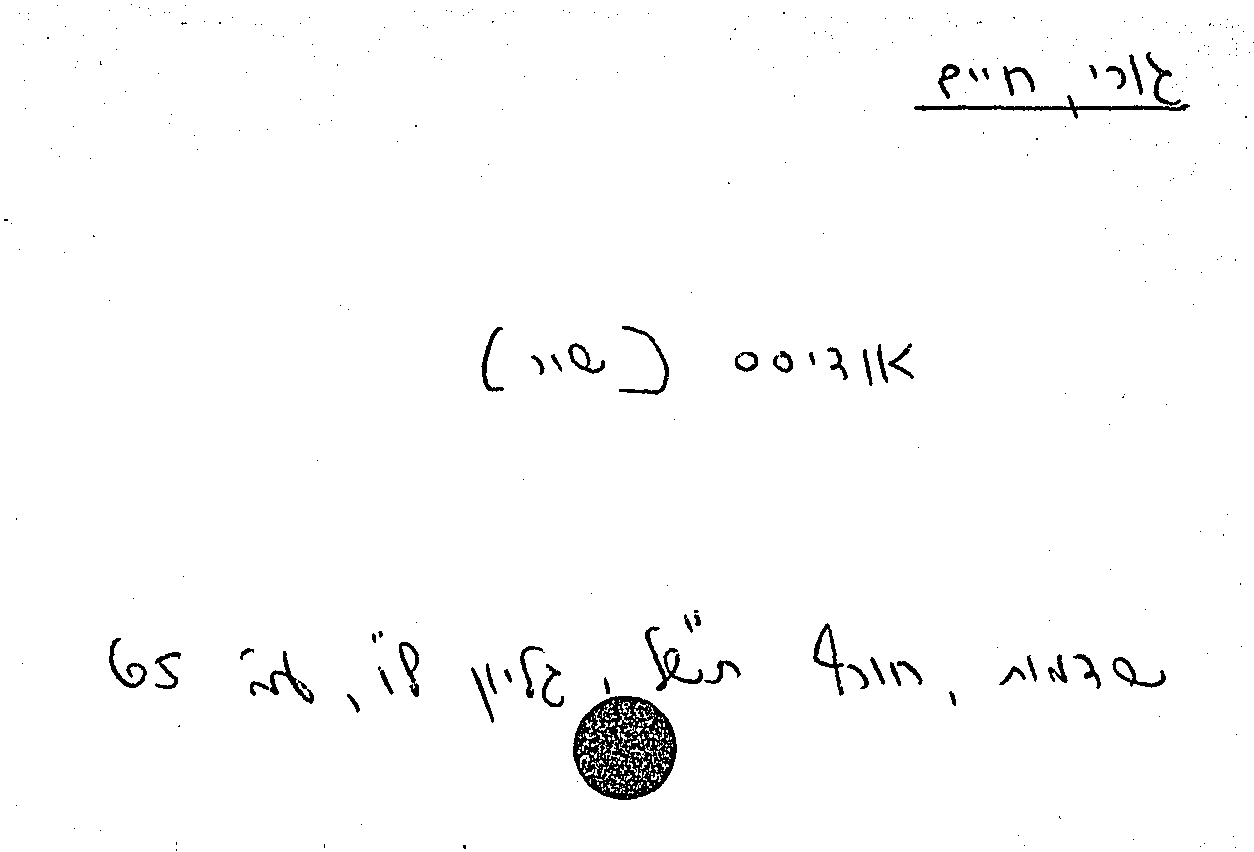 גורי, חיים
אודיסס (שיר)
שדמות, חורף תש"ל, גליון ל"ו, עמ' 65